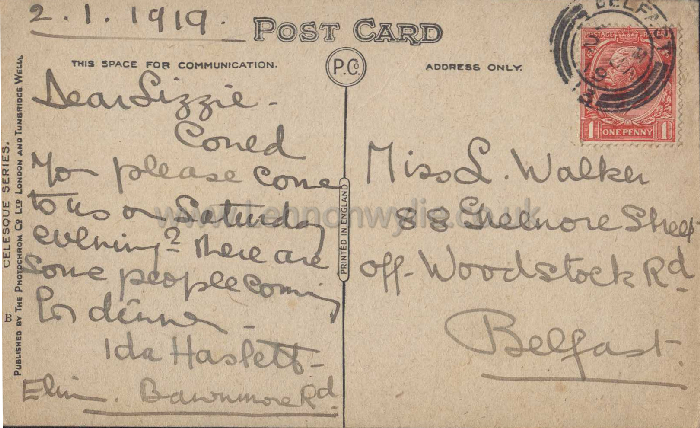 2.1.1919.
POST CARD
THIS SPACE FOR COMMUNICATION.
P.C.
ADDRESS ONLY.
BELFAST
1D ONE PENNY 1D
Dear Lizzie -
Could
you please come
to us on Saturday
evening? There are
some people coming
for dinner -
Ida Haslett
Elim. Bawnmore Rd
Miss L. Walker
88 Greenore Street
off- Woodstock Rd
Belfast.
PRINTED IN ENGLAND
CELESQUE SERIES.
PUBLISHED BY THE PHOTOCHROM CO LTD LONDON AND TUNBRIDGE WELLS.
B
www.lennonwylie.co.uk